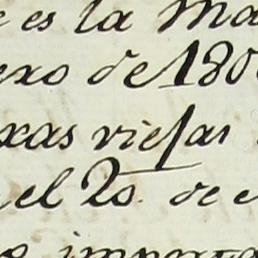 e es la Ma
ero de 180
xas viejas
el 20. de e
importa